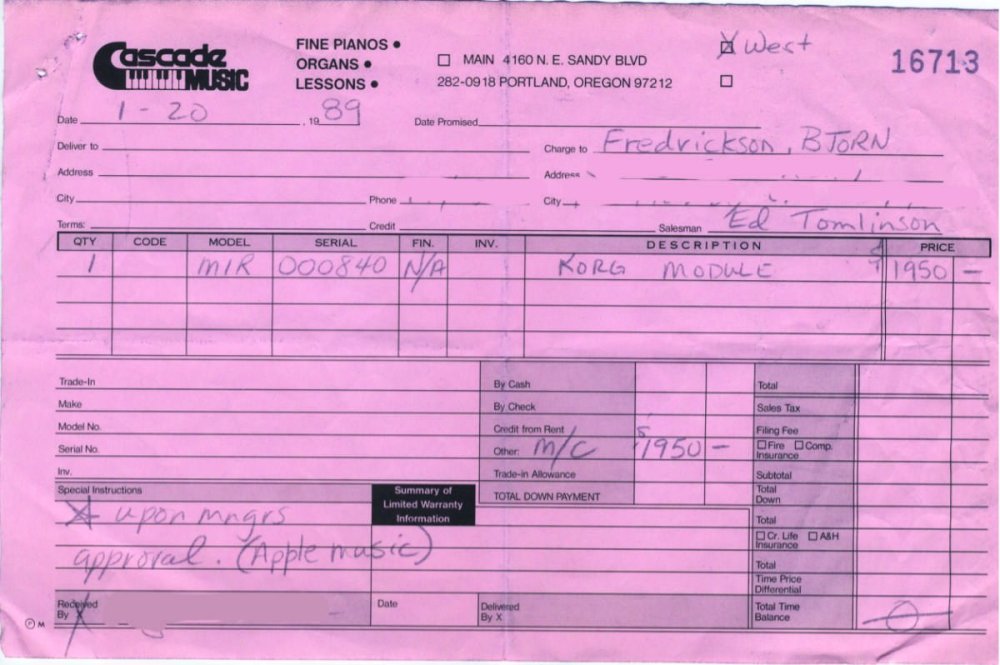 Cascade MUSIC
FINE PIANOS •
ORGANS •
LESSONS •
☐ MAIN 4160 N. E. SANDY BLVD
282-0918 PORTLAND, OREGON 97212
☒ West
☐
16713
Date 1-20, 1989
Date Promised
Deliver to
Charge to Fredrickson, BJORN
Address
Address
City Phone
City
Terms: Credit
Salesman Ed Tomlinson
QTY CODE MODEL SERIAL FIN. INV. DESCRIPTION PRICE
1 M1R 000840 N/A KORG MODULE $1950 —
Trade-In
Make
Model No.
Serial No.
Inv.
By Cash
By Check
Credit from Rent
Other: M/C $1950 —
Trade-in Allowance
TOTAL DOWN PAYMENT
Total
Sales Tax
Filing Fee
☐ Fire ☐ Comp.
Insurance
Subtotal
Total
Down
Total
☐ Cr. Life ☐ A&H
Insurance
Total
Time Price
Differential
Total Time
Balance 0
Special Instructions
upon mngrs
approval. (Apple music)
Summary of
Limited Warranty
Information
Received
By X
Date
Delivered
By X
P M